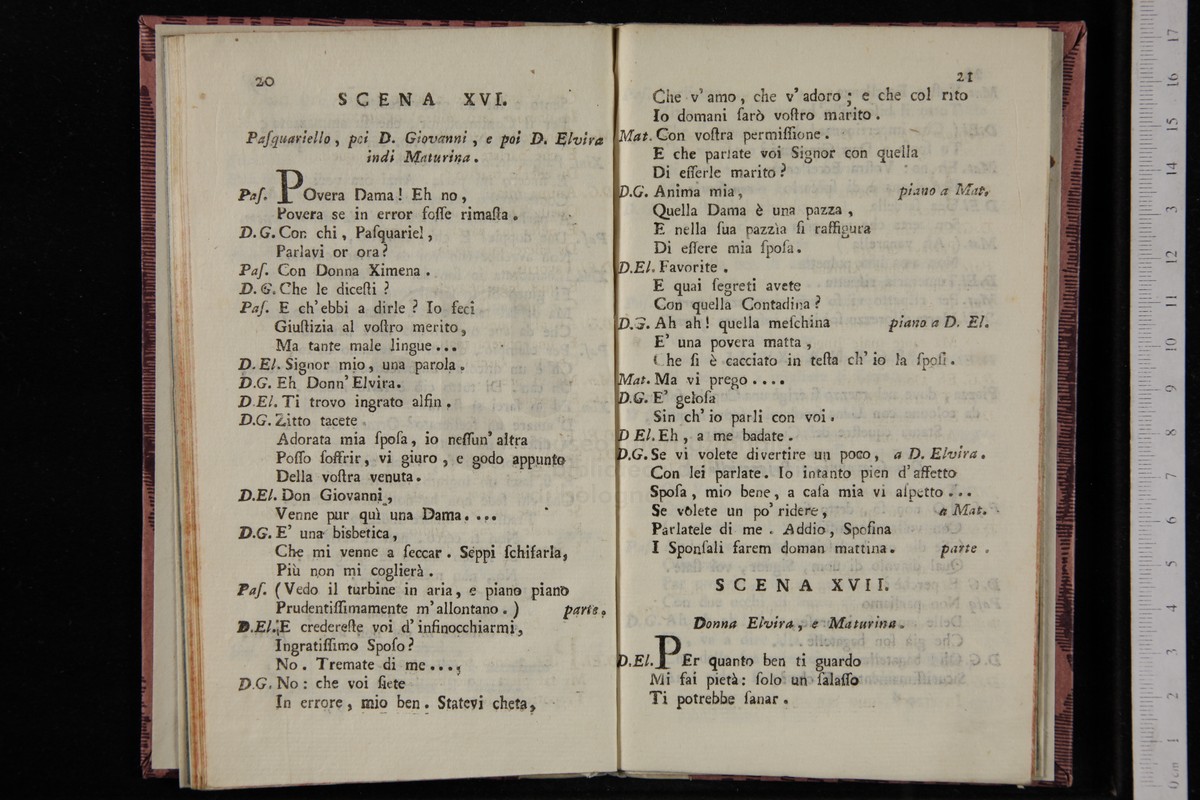 20
SCENA XVI.
Paſquariello, poi D. Giovanni, e poi D. Elvira
indi Maturina.
Paſ. POvera Dama! Eh no,
Povera se in error foſſe rimaſta.
D.G. Con chi, Paſquariel,
Parlavi or ora?
Paſ. Con Donna Ximena.
D.G. Che le diceſti?
Paſ. E ch'ebbi a dirle? Io feci
Giuſtizia al voſtro merito,
Ma tante male lingue...
D.El. Signor mio, una parola.
D.G. Eh Donn'Elvira.
D.El. Ti trovo ingrato alfin.
D.G. Zitto tacete.
Adorata mia ſpoſa, io neſſun'altra
Poſſo ſoffrir, vi giuro, e godo appunto
Della voſtra venuta.
D.El. Don Giovanni,
Venne pur quì una Dama....
D.G. E' una bisbetica,
Che mi venne a ſeccar. Seppi ſchifarla,
Più non mi coglierà.
Paſ. (Vedo il turbine in aria, e piano piano
Prudentiſſimamente m'allontano.) parte,
D.El. E credereſte voi d'infinocchiarmi,
Ingratiſſimo Spoſo?
No. Tremate di me....
D.G. No: che voi ſiete
In errore, mio ben. Statevi cheta,
21
Che v'amo, che v'adoro; e che col rito
Io domani ſarò voſtro marito.
Mat. Con voſtra permiſſione.
E che parlate voi Signor con quella
Di eſſerle marito?
D.G. Anima mia, piano a Mat.
Quella Dama è una pazza,
E nella ſua pazzìa ſi raffigura
Di eſſere mia ſpoſa.
D.El. Favorite.
E quai ſegreti avete
Con quella Contadina?
D.G. Ah ah! quella meſchina piano a D. El.
E' una povera matta,
Che ſi è cacciato in teſta ch'io la ſpoſi.
Mat. Ma vi prego....
D.G. E' geloſa
Sin ch'io parli con voi.
D El. Eh, a me badate.
D.G. Se vi volete divertire un poco, a D. Elvira.
Con lei parlate. Io intanto pien d'affetto
Spoſa, mio bene, a caſa mia vi aſpetto...
Se volete un po' ridere, a Mat.
Parlatele di me. Addio, Spoſina
I Sponſali farem doman mattina. parte.
SCENA XVII.
Donna Elvira, e Maturina.
D.El. PEr quanto ben ti guardo
Mi fai pietà: ſolo un ſalaſſo
Ti potrebbe ſanar.
0 cm 1 2 3 4 5 6 7 8 9 10 11 12 13 14 15 16 17